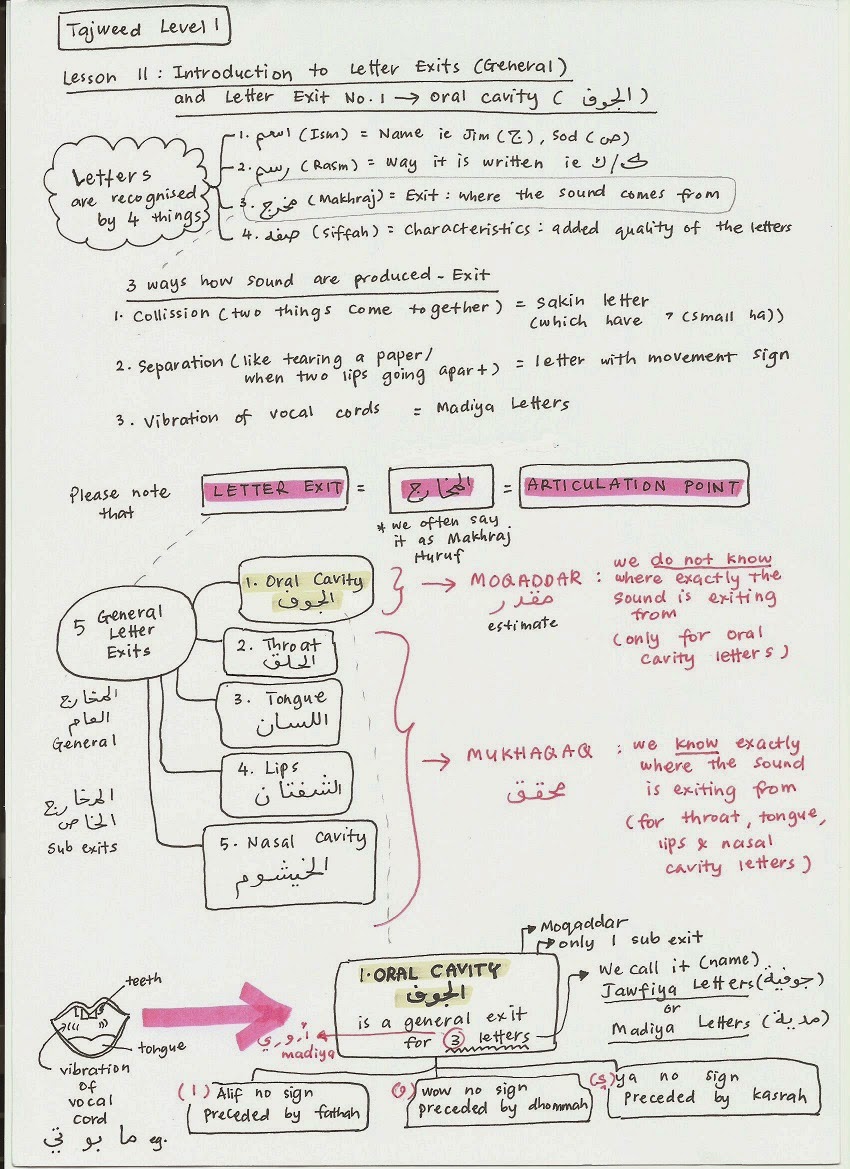 Tajweed Level 1
Lesson 11: Introduction to Letter Exits (General)
and Letter Exit No. 1 → Oral cavity (الجوف)
Letters
are recognised
by 4 things
1. اسم (Ism) = Name ie Jim (ج), Sod (ص)
2. رسم (Rasm) = way it is written ie ك/ڪ
3. مخرج (Makhraj) = Exit : where the sound comes from
4. صفه (Siffah) = Characteristics : added quality of the letters
3 ways how sound are produced - Exit
1. Collission (two things come together) = sakin letter
(which have (small ha))
2. Separation (like tearing a paper/
when two lips going apart) = letter with movement sign
3. Vibration of vocal cords = Madiya Letters
Please note
that
LETTER EXIT = المخارج = ARTICULATION POINT
* we often say
it as Makhraj
Huruf
5 General
Letter
Exits
المخارج
العام
General
المخارج
الخاص
Sub exits
1. Oral Cavity
الجوف
2. Throat
الحلق
3. Tongue
اللسان
4. Lips
الشفتان
5. Nasal Cavity
الخيشوم
→ MOQADDAR :
مقدر
estimate
we do not know
where exactly the
sound is exiting
from
(only for oral
cavity letters)
→ MUKHAQAQ :
محقق
we know exactly
where the sound
is exiting from
(for throat, tongue,
lips & nasal
cavity letters)
teeth
tongue
vibration
of
vocal
cord
ما بو تي eg.
Moqaddar
only 1 sub exit
1. ORAL CAVITY
الجوف
is a general exit
for 3 letters
madiya
We call it (name)
Jawfiya Letters (جوفية)
or
Madiya Letters (مدية)
(ا) Alif no sign
preceded by fathah
(و) wow no sign
preceded by dhommah
(ي) ya no sign
preceded by kasrah